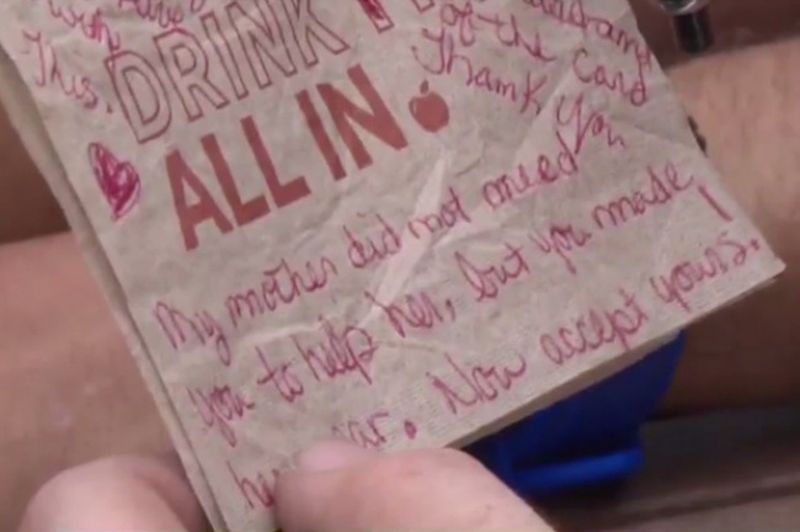 with
This.
DRINK
of the Card
Thank
you
ALL IN
My mother did not need
you to help her, but you made
Now accept yours.